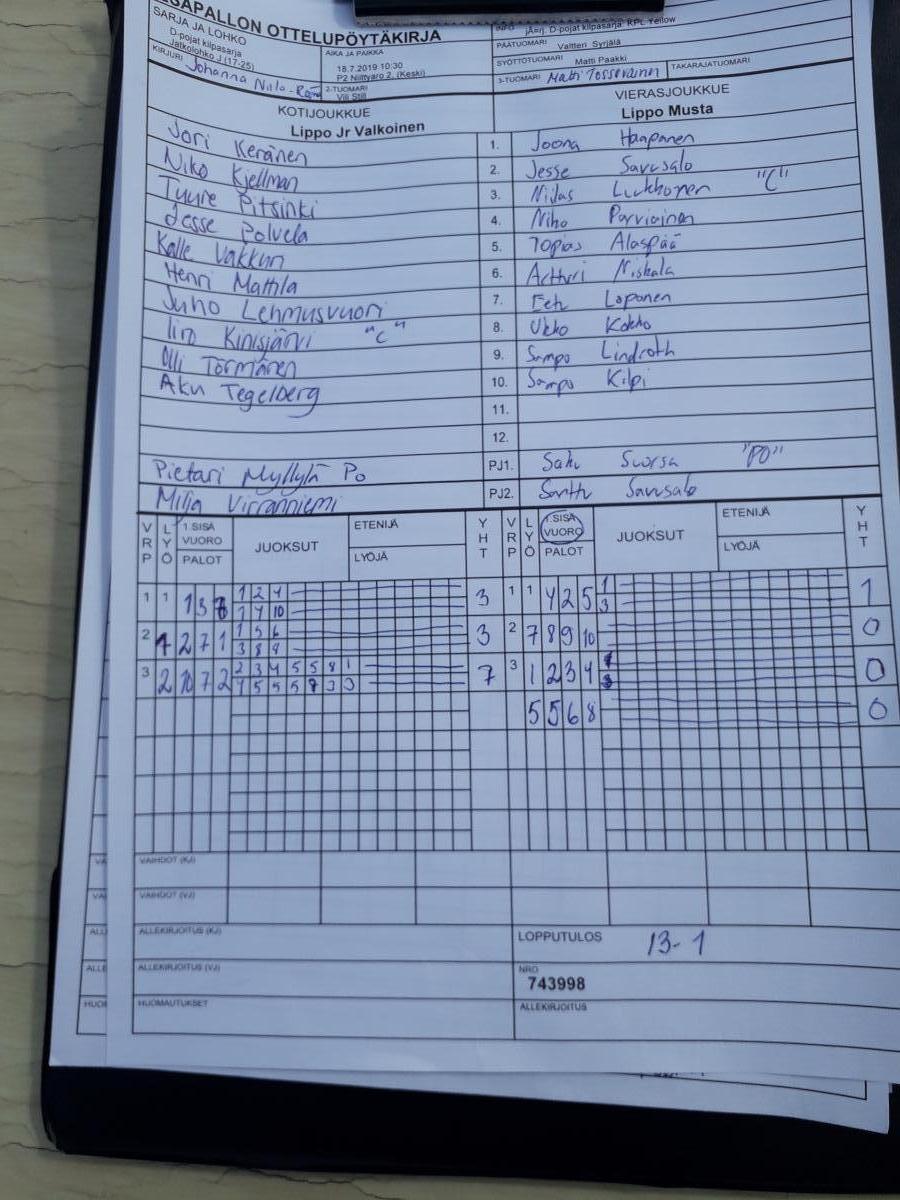 SAPALLON OTTELUPÖYTÄKIRJA
SARJA JA LOHKO
D-pojat kilpasarja
Jatkolohko J (17-25)
KIRJURI Johanna Niilo-Rämä
AIKA JA PAIKKA
18.7.2019 10:30
P2 Niittyaro 2, (Keski)
2-TUOMARI
Vili Still
INFO jAarj. D-pojat kilpasarja. RPL Yellow
PÄÄTUOMARI Valtteri Syrjälä
SYÖTTÖTUOMARI Matti Paakki
3-TUOMARI Matti Tossavainen TAKARAJATUOMARI
KOTIJOUKKUE
Lippo Jr Valkoinen
VIERASJOUKKUE
Lippo Musta
Jori Keränen 1. Joona Haapanen
Niko Kjellman 2. Jesse Savusalo
Tuure Pitsinki 3. Niilas Lukkonen "C"
Jesse Polvela 4. Niko Parviainen
Kalle Vakkuri 5. Topias Alaspää
Henri Mattila 6. Artturi Niskala
Juho Lehmusvuori 7. Eetu Loponen
Iiro Kinisjärvi "C" 8. Ukko Kokko
Olli Törmänen 9. Sampo Lindroth
Aku Tegelberg 10. Sampo Kilpi
11.
12.
Pietari Myllylä Po PJ1. Saku Suorsa "PO"
Milja Virranniemi PJ2. Santtu Savusalo
VRP LYÖ 1.SISÄ VUORO PALOT JUOKSUT ETENIJÄ LYÖJÄ YHT VRP LYÖ 1.SISÄ VUORO PALOT JUOKSUT ETENIJÄ LYÖJÄ YHT
1 1 1 3 8 1 2 4 3 1 1 4 2 5 1 1
1 4 10 3
2 4 2 7 1 1 5 6 3 2 7 8 9 10 0
3 8 9
3 2 10 7 2 2 3 4 5 5 8 1 7 3 1 2 3 4 0
4 5 5 5 8 3 3
5 5 6 8 0
VAIHDOT (KJ)
VAIHDOT (VJ)
ALLEKIRJOITUS (KJ)
LOPPUTULOS 13-1
ALLEKIRJOITUS (VJ)
NRO
743998
HUOMAUTUKSET
ALLEKIRJOITUS